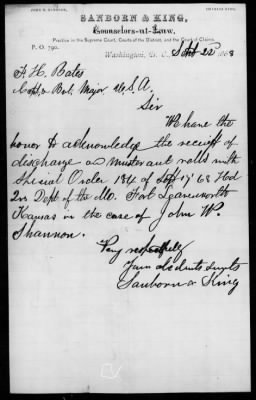 JOHN B. SANBORN, CHARLES KING.
SANBORN & KING,
Counselors-at-Law,
Practice in the Supreme Court, Courts of the District, and the Court of Claims.
P. O. 790.
Washington, D. C. Sept 22 1868
F. H. Bates
Capt & Bvt. Major U.S.A.
Sir
We have the
honor to acknowledge the receipt of
discharge and muster out rolls with
Special Order 184 of Sept 17 '68 Hed
Qrs Dept of the Mo. Fort Leavenworth
Kansas in the case of John W.
Shannon.
Very respectfully
Your obedients
Sanborn & King